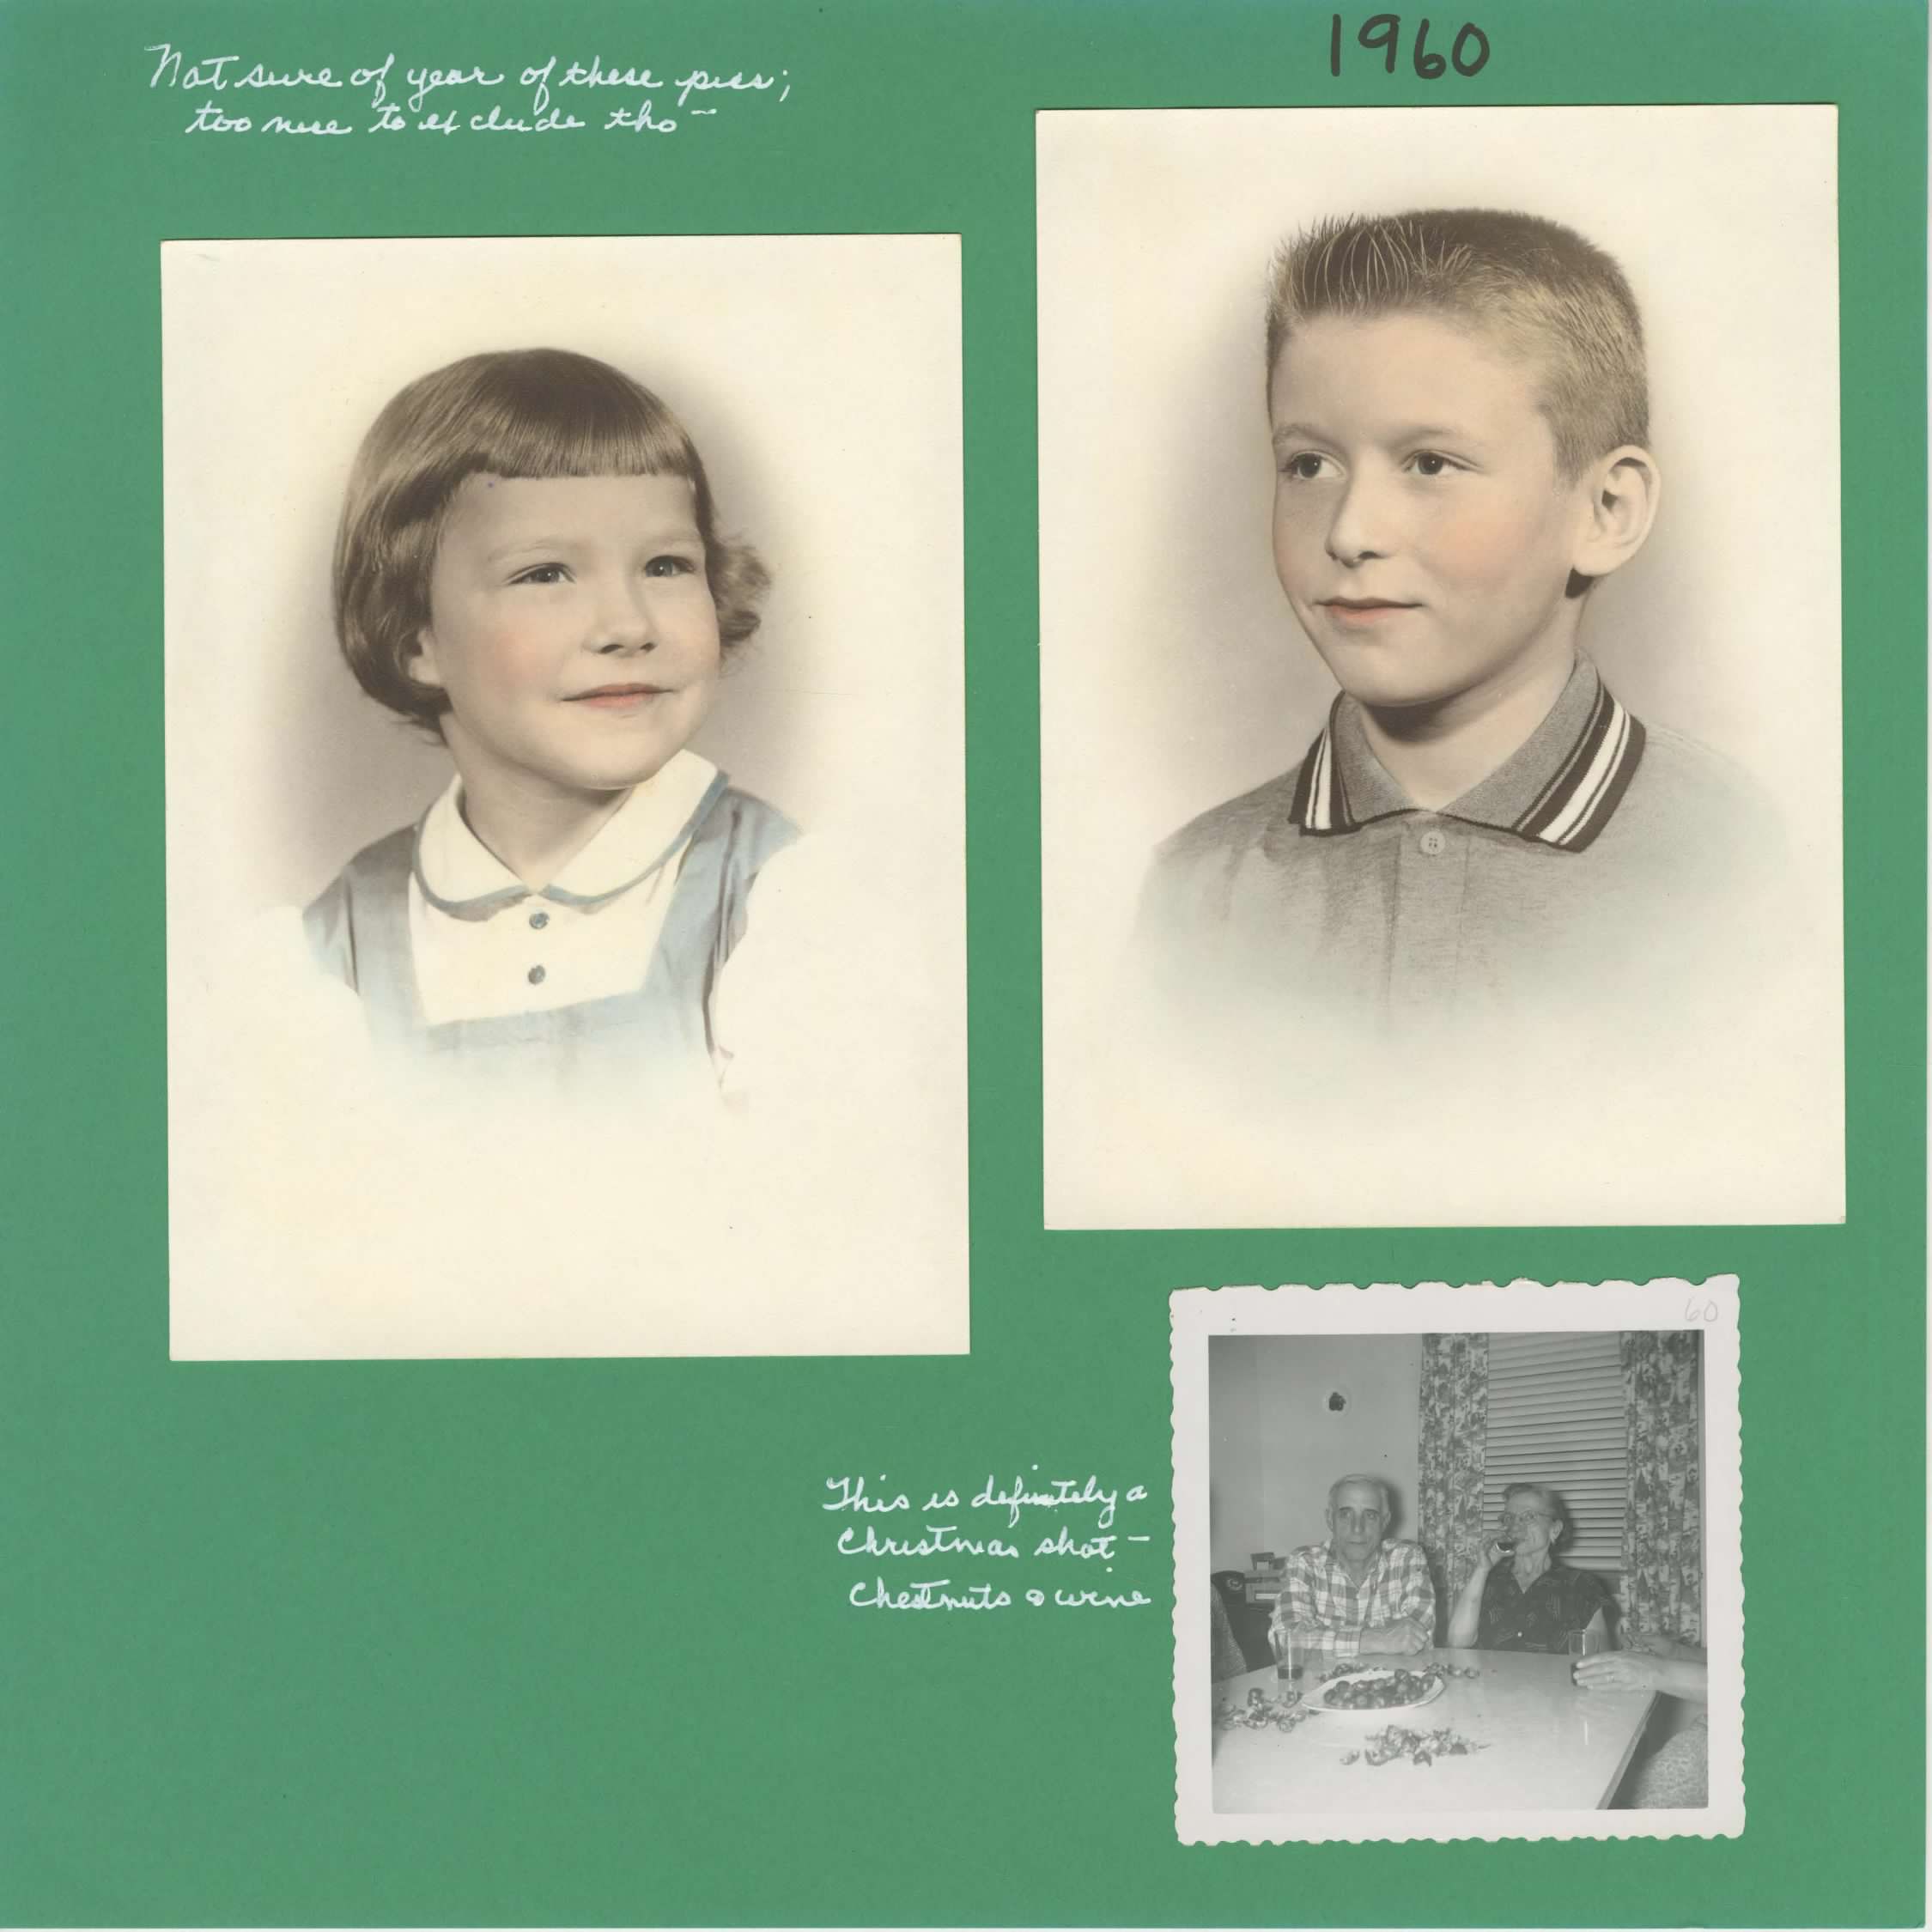 1960
Not sure of year of these pics;
too nice to exclude tho —
60
This is definitely a
Christmas shot —
Chestnuts & wine